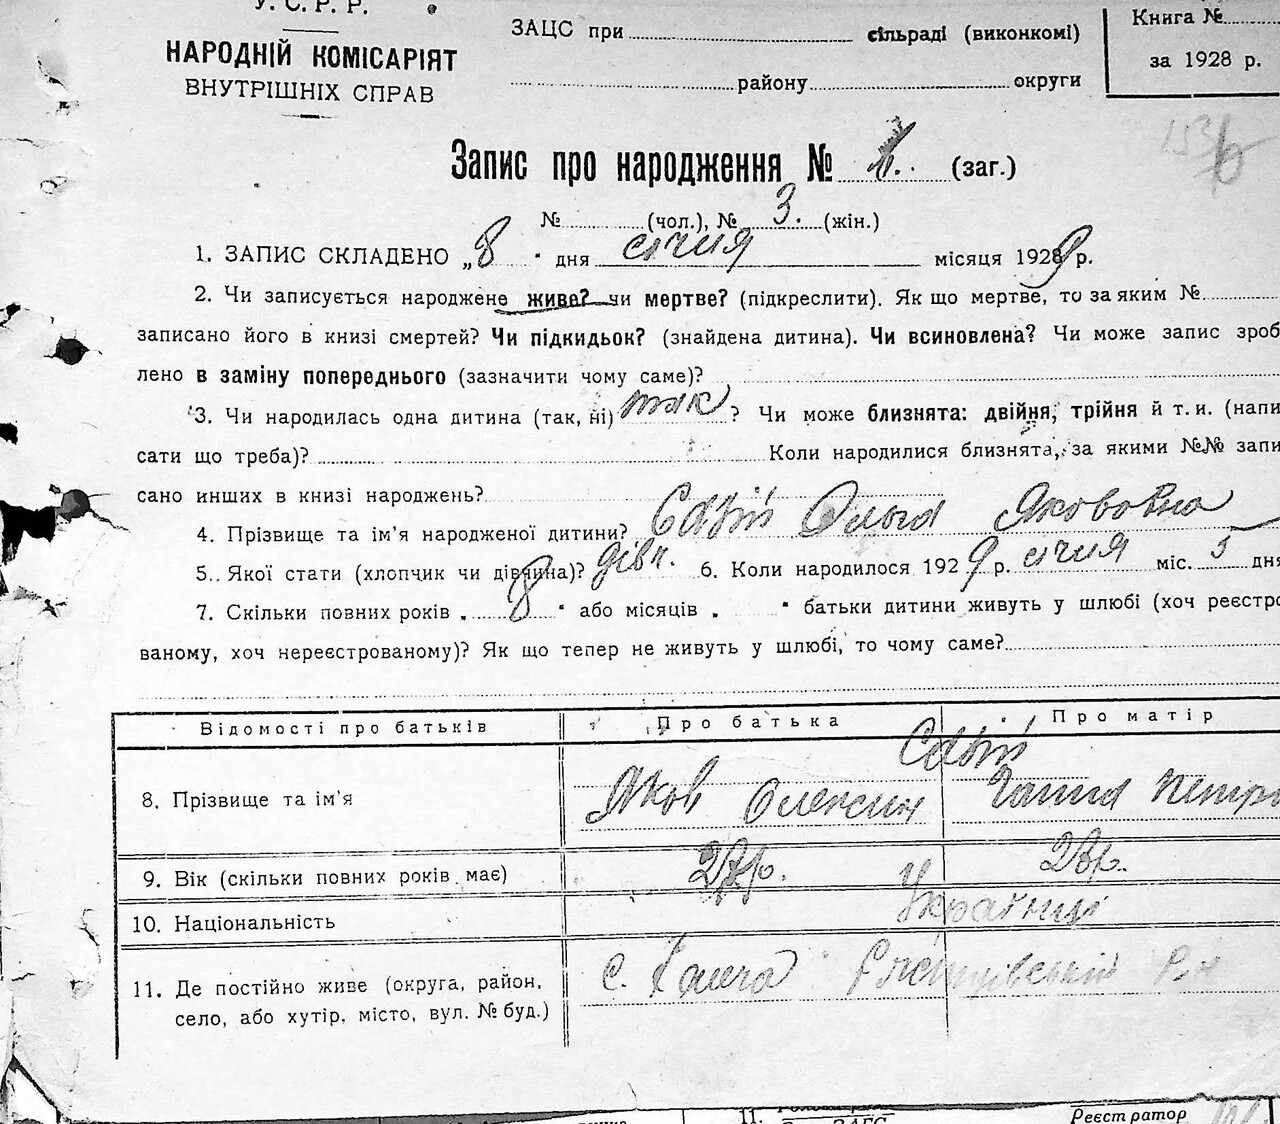 У. С. Р. Р.
НАРОДНІЙ КОМІСАРІЯТ
ВНУТРІШНІХ СПРАВ
ЗАЦС при сільраді (виконкомі)
району округи
Книга №
за 1928 р.
153б
Запис про народження № (заг.)
№ (чол.), № 3. (жін.)
1. ЗАПИС СКЛАДЕНО „8" дня січня місяця 1929 р.
2. Чи записується народжене живе? чи мертве? (підкреслити). Як що мертве, то за яким №
записано його в книзі смертей? Чи підкидьок? (знайдена дитина). Чи всиновлена? Чи може запис зроб
лено в заміну попереднього (зазначити чому саме)?
3. Чи народилась одна дитина (так, ні) так? Чи може близнята: двійня, трійня й т. и. (напи
сати що треба)? Коли народилися близнята, за якими №№ запи
сано инших в книзі народжень?
4. Прізвище та ім'я народженої дитини? Ольга Якововна
5. Якої стати (хлопчик чи дівчина)? дівч. 6. Коли народилося 1929 р. січня міс. 3 дня
7. Скільки повних років „8" або місяців „ " батьки дитини живуть у шлюбі (хоч реєстро
ваному, хоч нереєстрованому)? Як що тепер не живуть у шлюбі, то чому саме?
Відомості про батьків Про батька Про матір
8. Прізвище та ім'я Яков Олексин Ганна Петро
9. Вік (скільки повних років має) 27 р. 28 р.
10. Національність Українці
11. Де постійно живе (округа, район,
село, або хутір, місто, вул. № буд.) с.
Реєстратор